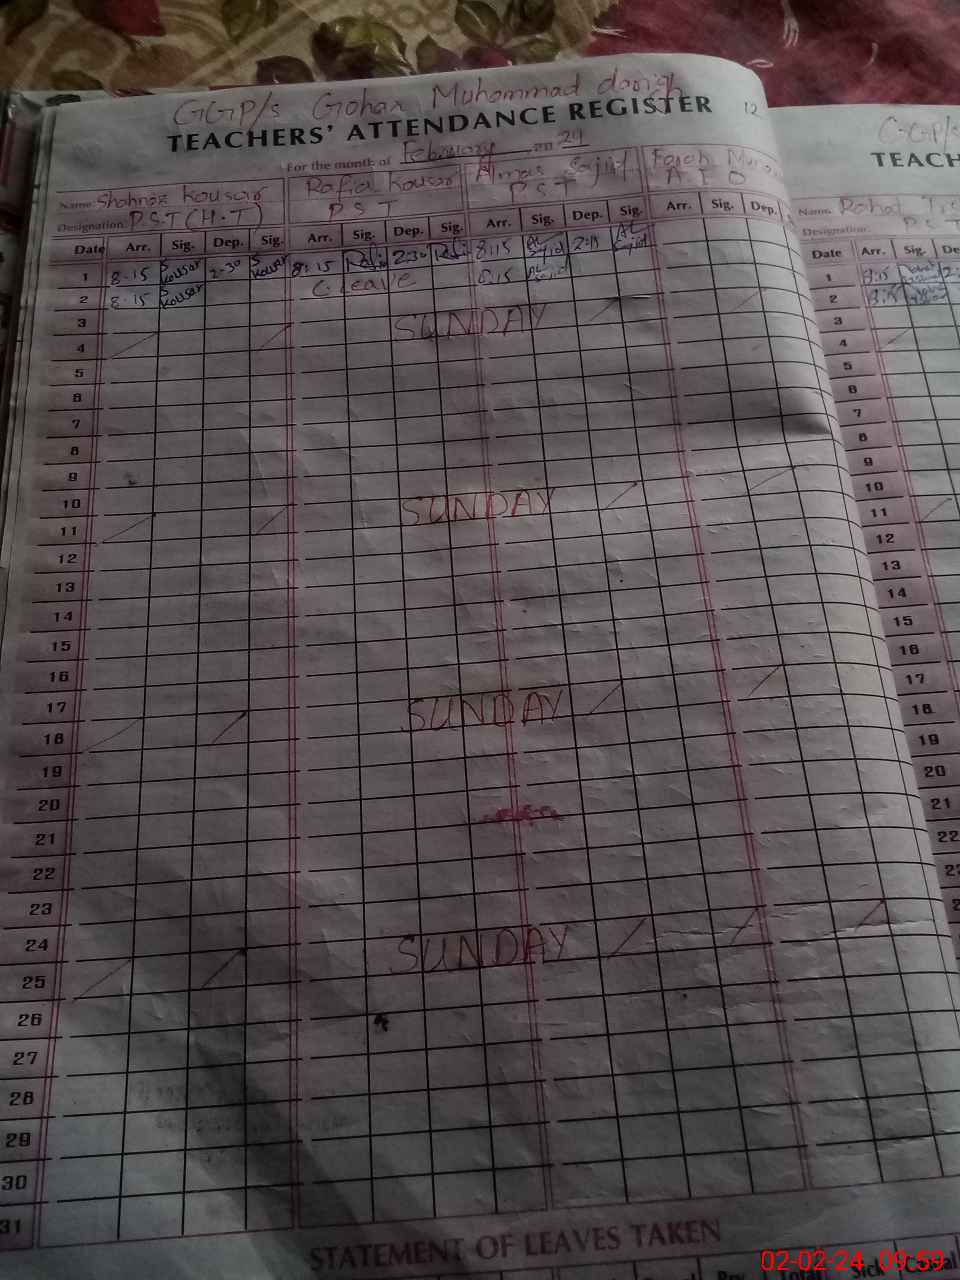 GGP/s Gohar Muhammad danish 12
TEACHERS' ATTENDANCE REGISTER
For the month of February 20 24
Name: Shahnaz Kousar Rafia Kousar Almas Sajid Farah
Designation: P.S.T (H.T) P S T P S T
Date Arr. Sig. Dep. Sig. Arr. Sig. Dep. Sig. Arr. Sig. Dep. Sig. Arr. Sig. Dep.
1 8-15 S Kousar 2-30 S Kousar 8:15 Rafia 2:30 Rafia 8:15 Al Sajid 2:15 Al Sajid
2 8.15 S Kousar C. leave 8.15 Al Sajid
3
4 SUNDAY
5
6
7
8
9
10
11 SUNDAY
12
13
14
15
16
17
18 SUNDAY
19
20
21
22
23
24
25 SUNDAY
26
27
28
29
30
31
STATEMENT OF LEAVES TAKEN
GGP/s
TEACH
Name:
Designation: P.S
Date Arr. Sig. De
1 8:15
2 8:15
3
4
5
6
7
8
9
10
11
12
13
14
15
16
17
18
19
20
21
22
Sick Casual
02-02-24 09:59